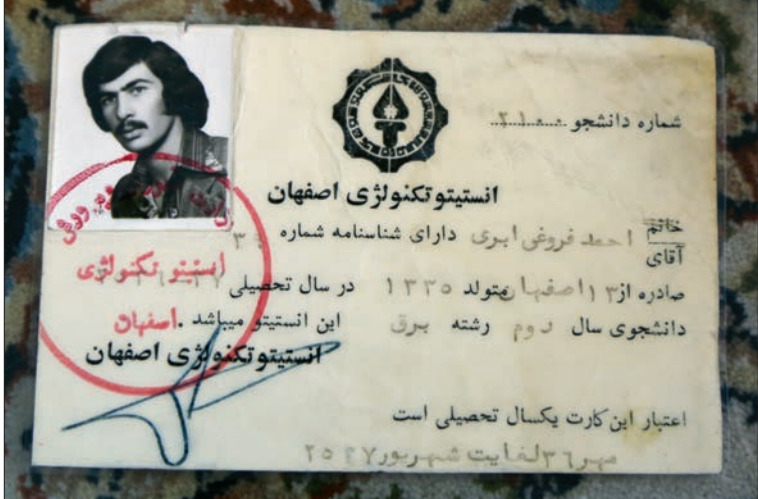 شماره دانشجو
انستیتو تکنولژی اصفهان
خانم
آقای
احمد فروغی ابری دارای شناسنامه شماره ۳۴
صادره از ۱۳ اصفهان متولد ۱۳۳۵ در سال تحصیلی
دانشجوی سال دوم رشته برق این انستیتو میباشد .
انستیتو تکنولژی اصفهان
اعتبار این کارت یکسال تحصیلی است
مهر ۳۶ لغایت شهریور ۲۵۳۷
انستیتو تکنولژی
اصفهان